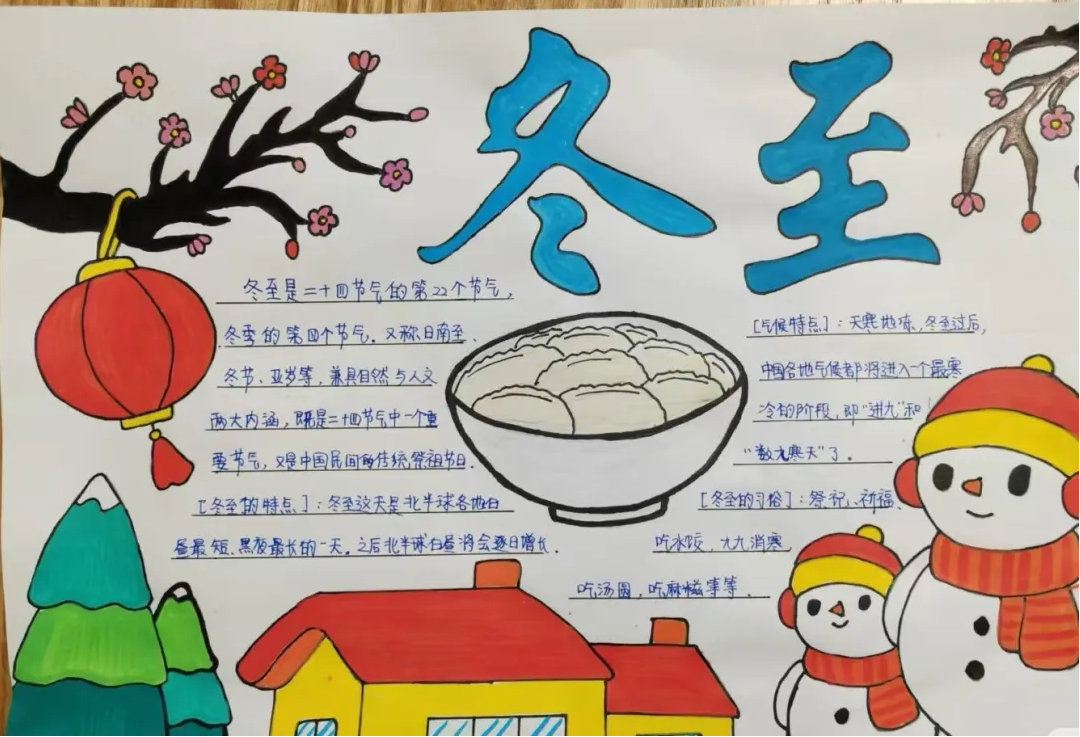 冬至
冬至是二十四节气的第22个节气,
冬季的第四个节气。又称日南至、
冬节、亚岁等,兼具自然与人文
两大内涵,既是二十四节气中一个重
要节气,又是中国民间的传统祭祖节日.
[冬至的特点]:冬至这天是北半球各地白
昼最短、黑夜最长的一天。之后北半球白昼将会逐日增长.
[气候特点]:天寒地冻,冬至过后,
中国各地气候都将进入一个最寒
冷的阶段,即“进九”和
“数九寒天”了.
[冬至的习俗]:祭记、祈福、
吃水饺,九九消寒
吃汤圆,吃麻糍事等.